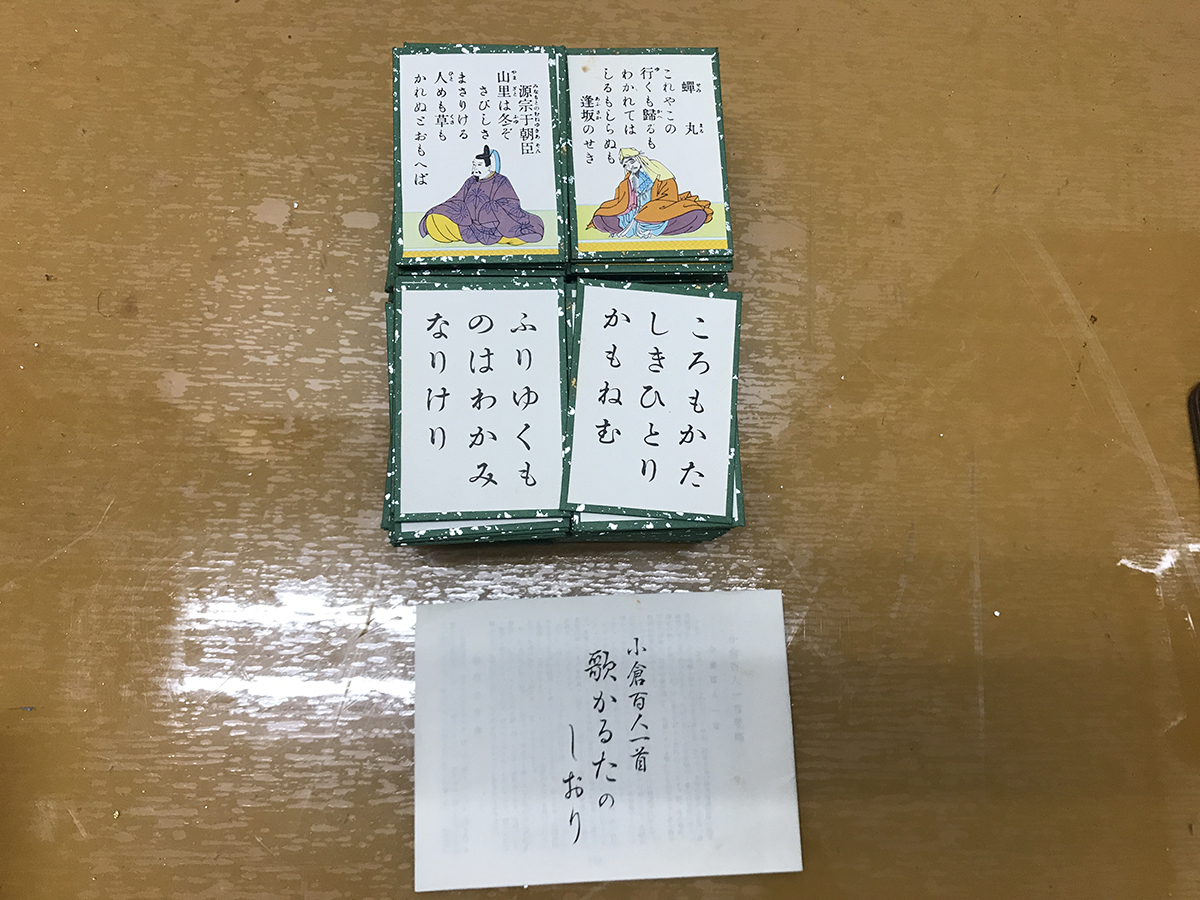 蟬丸
これやこの
行くも歸るも
わかれては
しるもしらぬも
逢坂のせき
源宗于朝臣
山里は冬ぞ
さびしさ
まさりける
人めも草も
かれぬとおもへば
ころもかた
しきひとり
かもねむ
ふりゆくも
のはわかみ
なりけり
小倉百人一首
歌かるたの
しおり